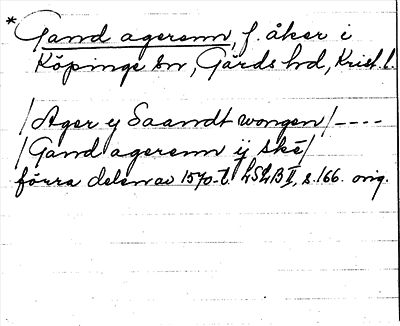 * Gand agerenn, f. åker i
Köpinge sn, Gärds hd, Krist. l.
/Ager y Saandt wongen/----
/Gand agerenn ij ske/
förra delen av 1570-t. LSLB II, s. 166. orig.